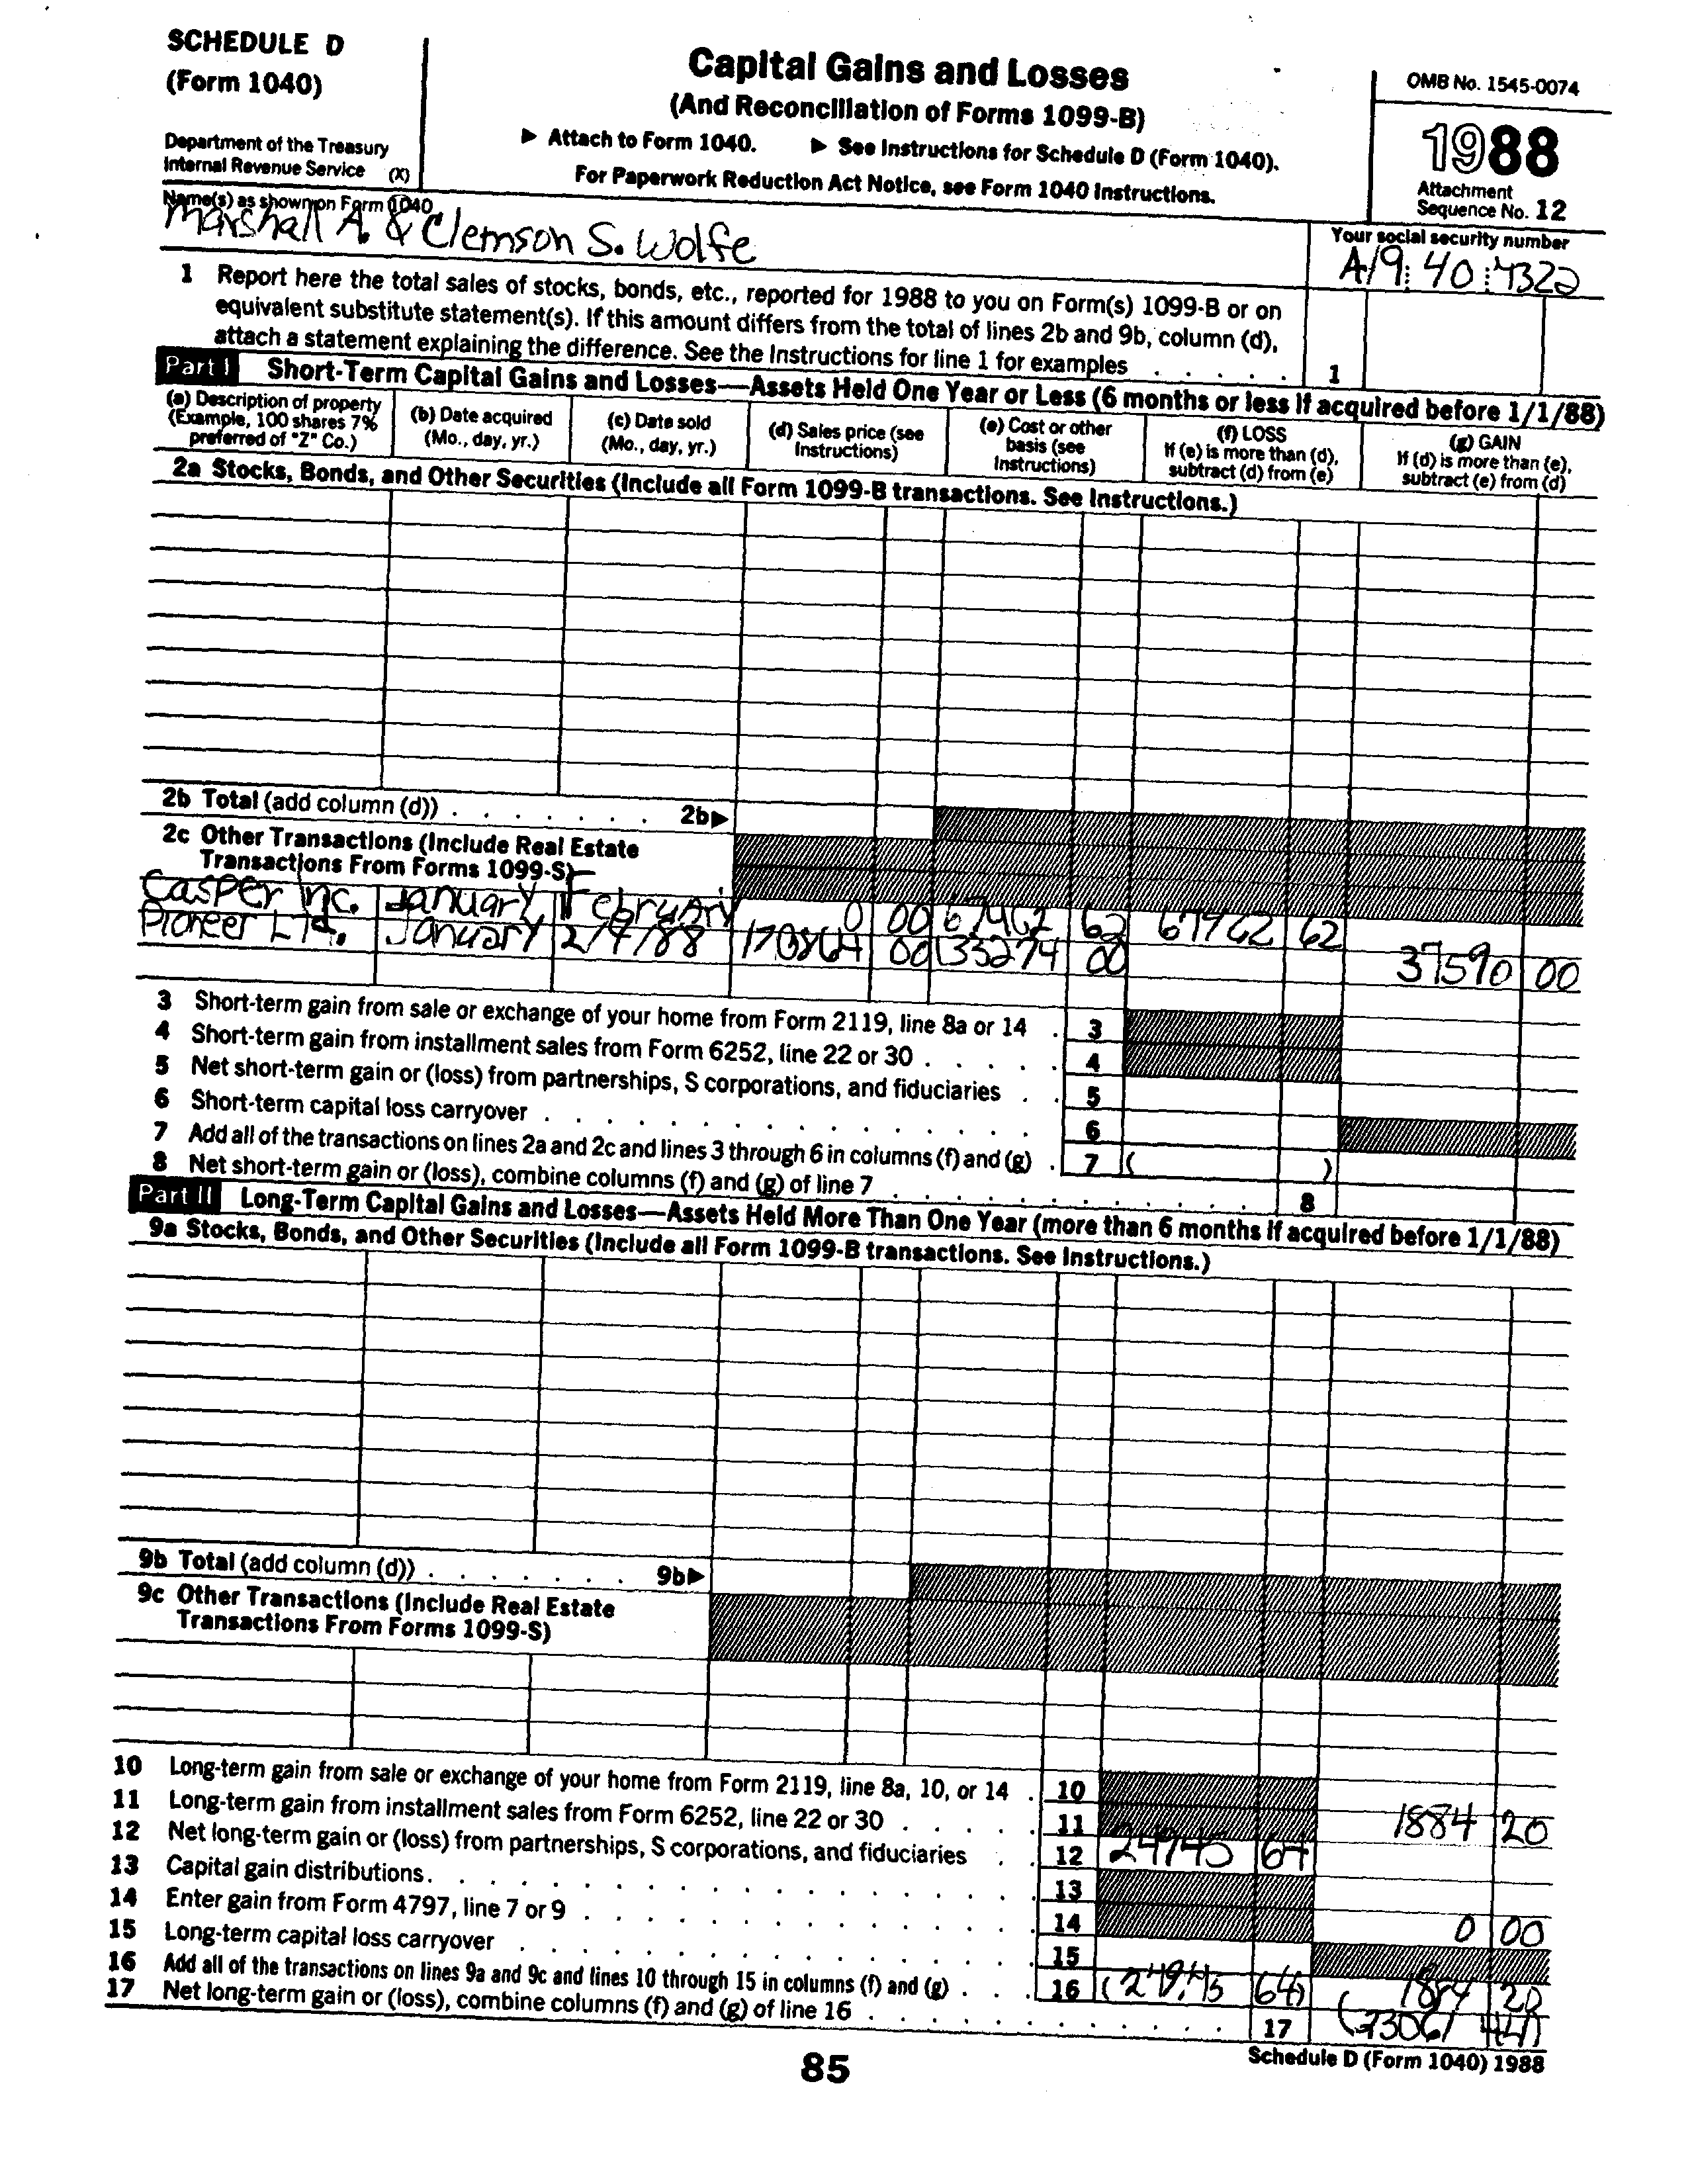 SCHEDULE D
(Form 1040)
Department of the Treasury
Internal Revenue Service (X)
Capital Gains and Losses
(And Reconciliation of Forms 1099-B)
▶ Attach to Form 1040. ▶ See Instructions for Schedule D (Form 1040).
For Paperwork Reduction Act Notice, see Form 1040 Instructions.
OMB No. 1545-0074
1988
Attachment
Sequence No. 12
Name(s) as shown on Form 1040
Marshall A. & Clemson S. Wolfe
Your social security number
A19:40:4322
1 Report here the total sales of stocks, bonds, etc., reported for 1988 to you on Form(s) 1099-B or on
equivalent substitute statement(s). If this amount differs from the total of lines 2b and 9b, column (d),
attach a statement explaining the difference. See the Instructions for line 1 for examples . . . . . 1
Part I Short-Term Capital Gains and Losses—Assets Held One Year or Less (6 months or less if acquired before 1/1/88)
(a) Description of property
(Example, 100 shares 7%
preferred of "Z" Co.)
(b) Date acquired
(Mo., day, yr.)
(c) Date sold
(Mo., day, yr.)
(d) Sales price (see
Instructions)
(e) Cost or other
basis (see
Instructions)
(f) LOSS
If (e) is more than (d),
subtract (d) from (e)
(g) GAIN
If (d) is more than (e),
subtract (e) from (d)
2a Stocks, Bonds, and Other Securities (Include all Form 1099-B transactions. See Instructions.)
2b Total (add column (d)) . . . . . . . 2b▶
2c Other Transactions (Include Real Estate
Transactions From Forms 1099-S)
Casper Inc. January February 0 00 62
Pioneer Ltd. January 2/4/88 170864 00 133274 00 37590 00
3 Short-term gain from sale or exchange of your home from Form 2119, line 8a or 14 . 3
4 Short-term gain from installment sales from Form 6252, line 22 or 30 . . . . . 4
5 Net short-term gain or (loss) from partnerships, S corporations, and fiduciaries . . 5
6 Short-term capital loss carryover . . . . . . . . . . . . . . . 6
7 Add all of the transactions on lines 2a and 2c and lines 3 through 6 in columns (f) and (g) . 7 ( )
8 Net short-term gain or (loss), combine columns (f) and (g) of line 7 . . . . . . . . . . . . . 8
Part II Long-Term Capital Gains and Losses—Assets Held More Than One Year (more than 6 months if acquired before 1/1/88)
9a Stocks, Bonds, and Other Securities (Include all Form 1099-B transactions. See Instructions.)
9b Total (add column (d)) . . . . . . . 9b▶
9c Other Transactions (Include Real Estate
Transactions From Forms 1099-S)
10 Long-term gain from sale or exchange of your home from Form 2119, line 8a, 10, or 14 . 10
11 Long-term gain from installment sales from Form 6252, line 22 or 30 . . . . . 11 1884 20
12 Net long-term gain or (loss) from partnerships, S corporations, and fiduciaries . . 12 24945 64
13 Capital gain distributions . . . . . . . . . . . . . . . . . 13
14 Enter gain from Form 4797, line 7 or 9 . . . . . . . . . . . . . 14 0 00
15 Long-term capital loss carryover . . . . . . . . . . . . . . . 15
16 Add all of the transactions on lines 9a and 9c and lines 10 through 15 in columns (f) and (g) . . . 16 (24945 64) 1884 20
17 Net long-term gain or (loss), combine columns (f) and (g) of line 16 . . . . . . . . . . . . . 17 (23061 44)
85
Schedule D (Form 1040) 1988